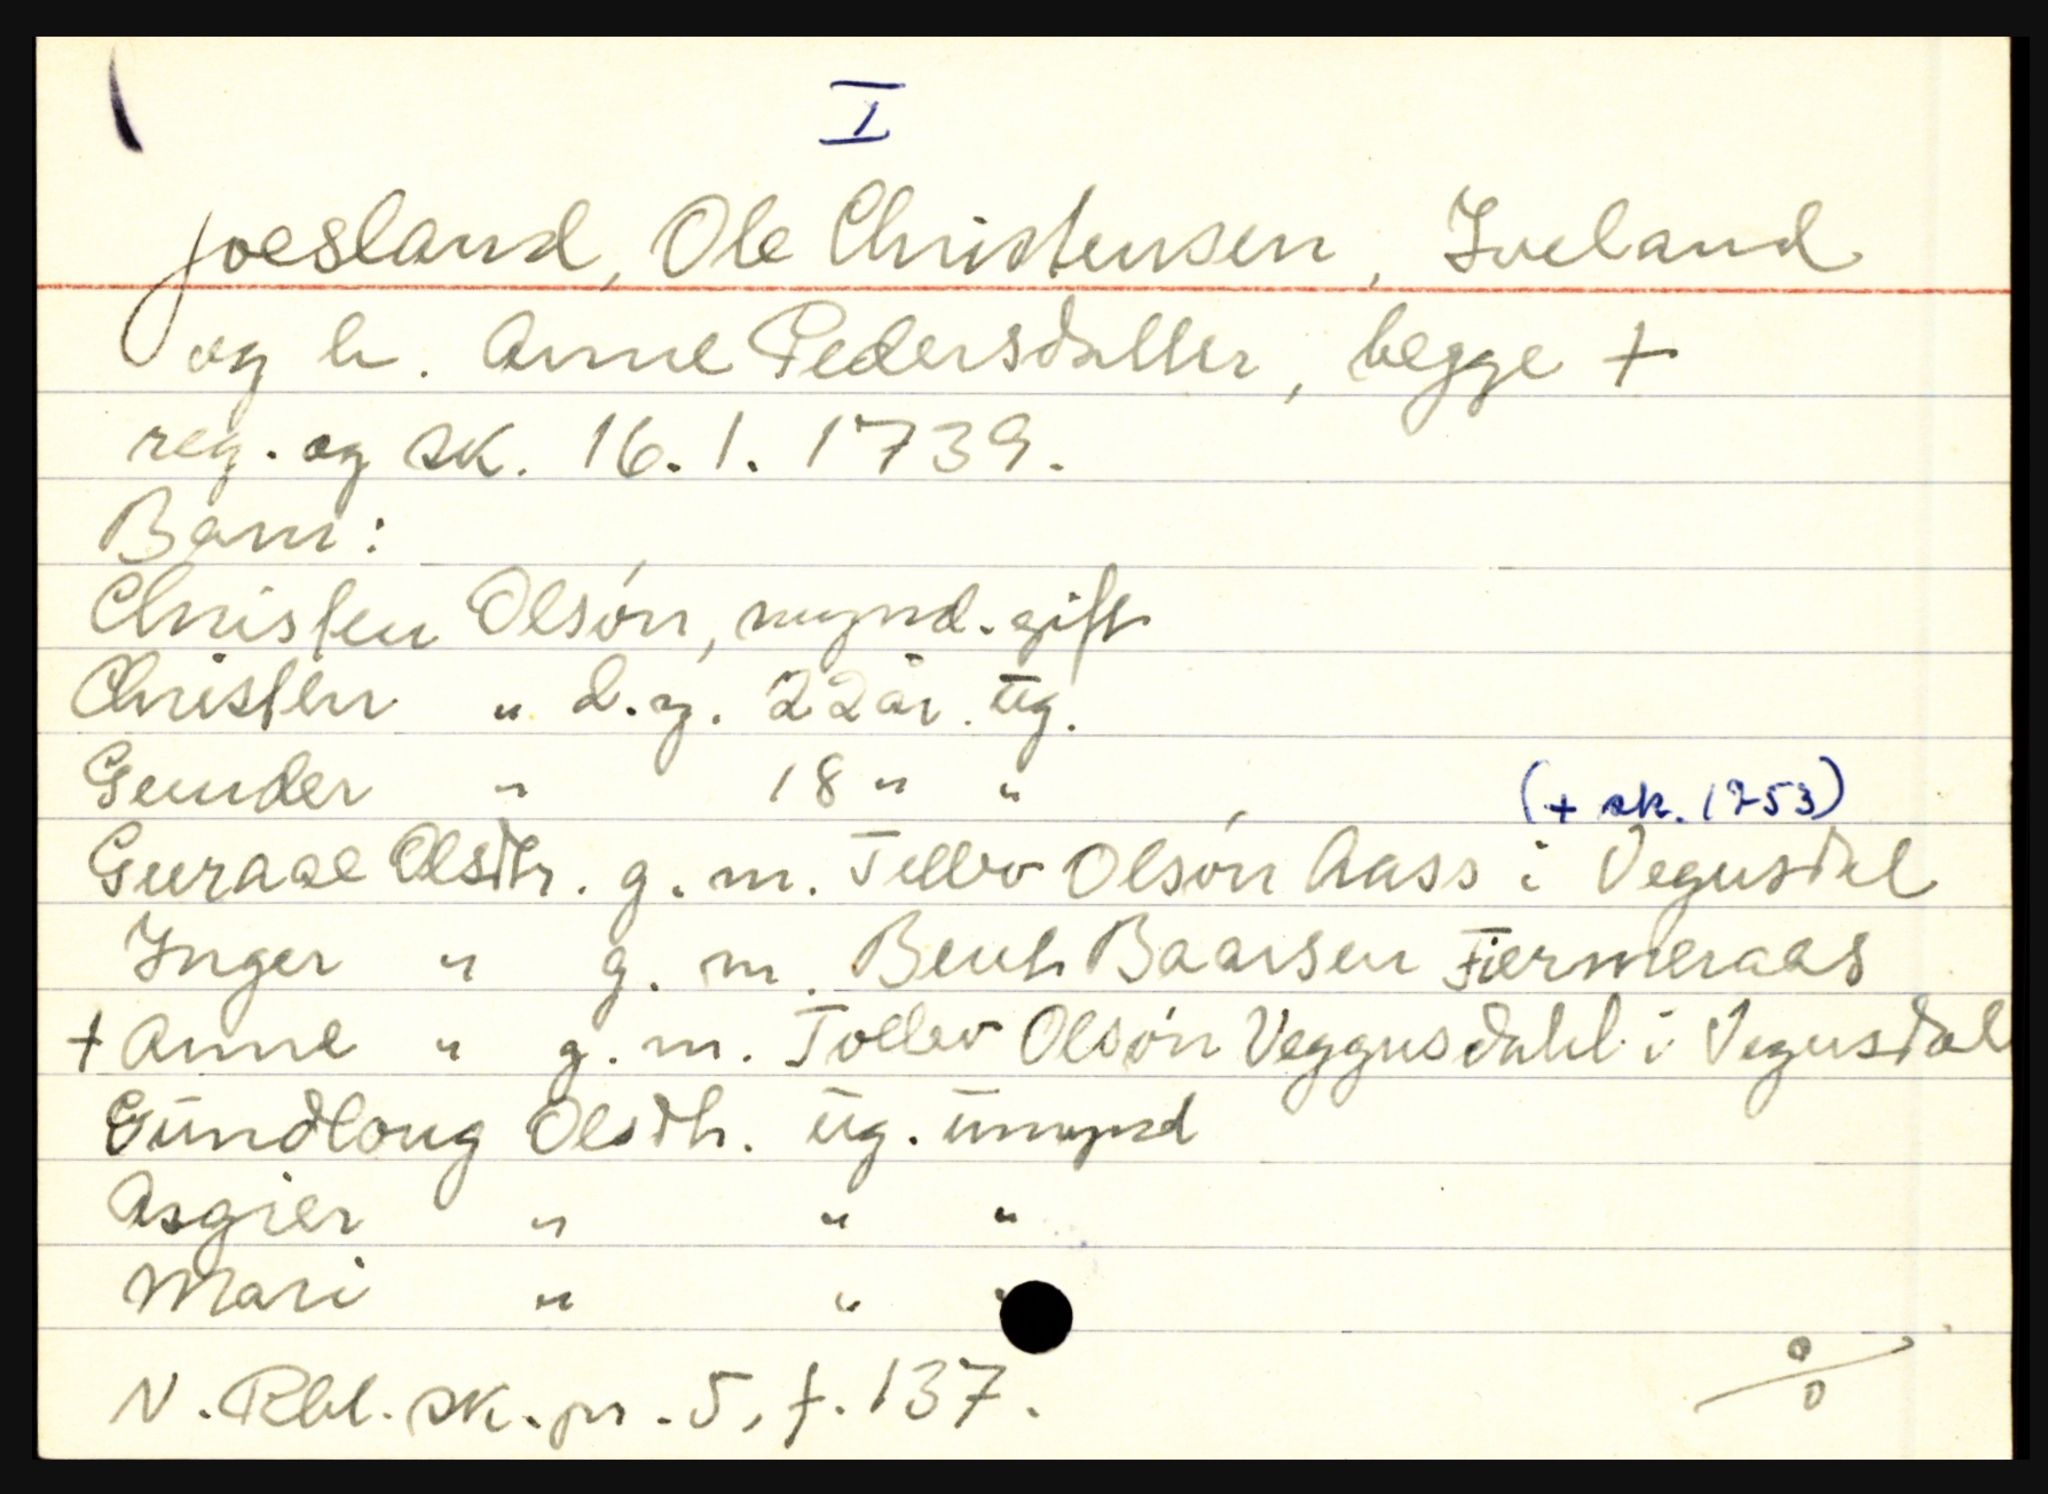 I
Joesland, Ole Christensen, Iveland
og h. Anne Pedersdatter, begge +
reg. og sk. 16. 1. 1739.
Barn:
Christen Olsön, mynd. gift
Christen " d.y. 22 år. ug.
Gunder " 18 " "
(+ sk. 1753)
Guraae Olsdtr. g. m. Tellev Olsön Aass i Vegusdal
Inger " g. m. Bent Baarsen Fiermeraas
+ Anne " g. m. Tollev Olsön Veggusdahl i Vegusdal
Gundloug Olsdtr. ug. umynd
Asgier " " "
Mari " " "
N. Rbl. sk. pr. 5, f. 137.
%